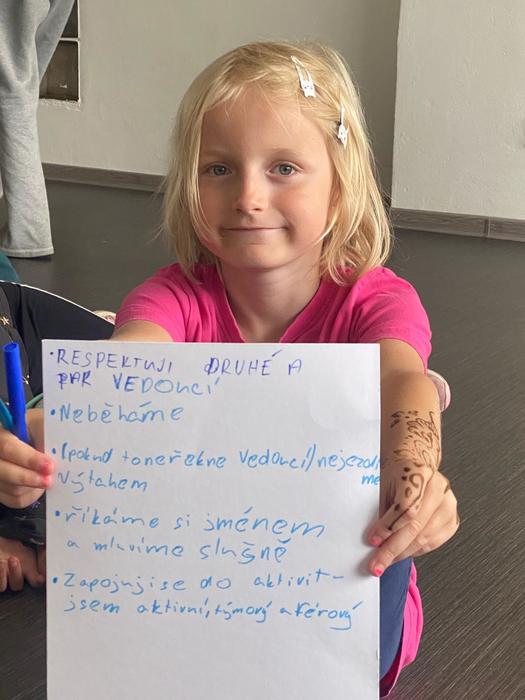 •RESPEKTUJI DRUHÉ A
PAR VEDOUCÍ
•Neběháme
•(pokud toneřekne vedoucí)nejezdí
me
výtahem
•říkáme si jménem
a mluvíme slušně
•Zapojuji se do aktivit-
jsem aktivní, týmový a férový